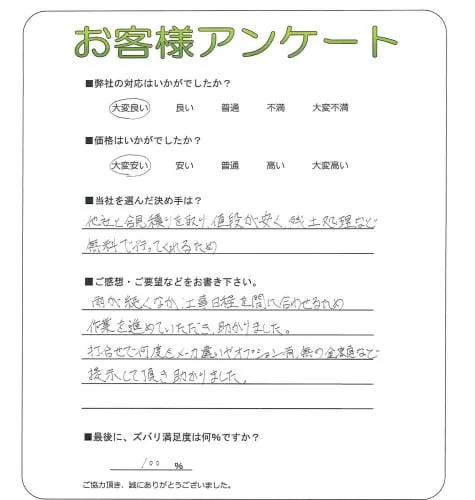 お客様アンケート
■弊社の対応はいかがでしたか?
大変良い 良い 普通 不満 大変不満
■価格はいかがでしたか?
大変安い 安い 普通 高い 大変高い
■当社を選んだ決め手は?
他社と合見積りを取り、値段が安く、残土処理など
無料で行ってくれるため
■ご感想・ご要望などをお書き下さい。
雨が続くなか、工事日程を間に合わせるため
作業を進めていただき、助かりました。
打合せで何度もメーカ違いやオプション有、無の金額など
提示して頂き助かりました。
■最後に、ズバリ満足度は何%ですか?
100 %
ご協力頂き、誠にありがとうございました。